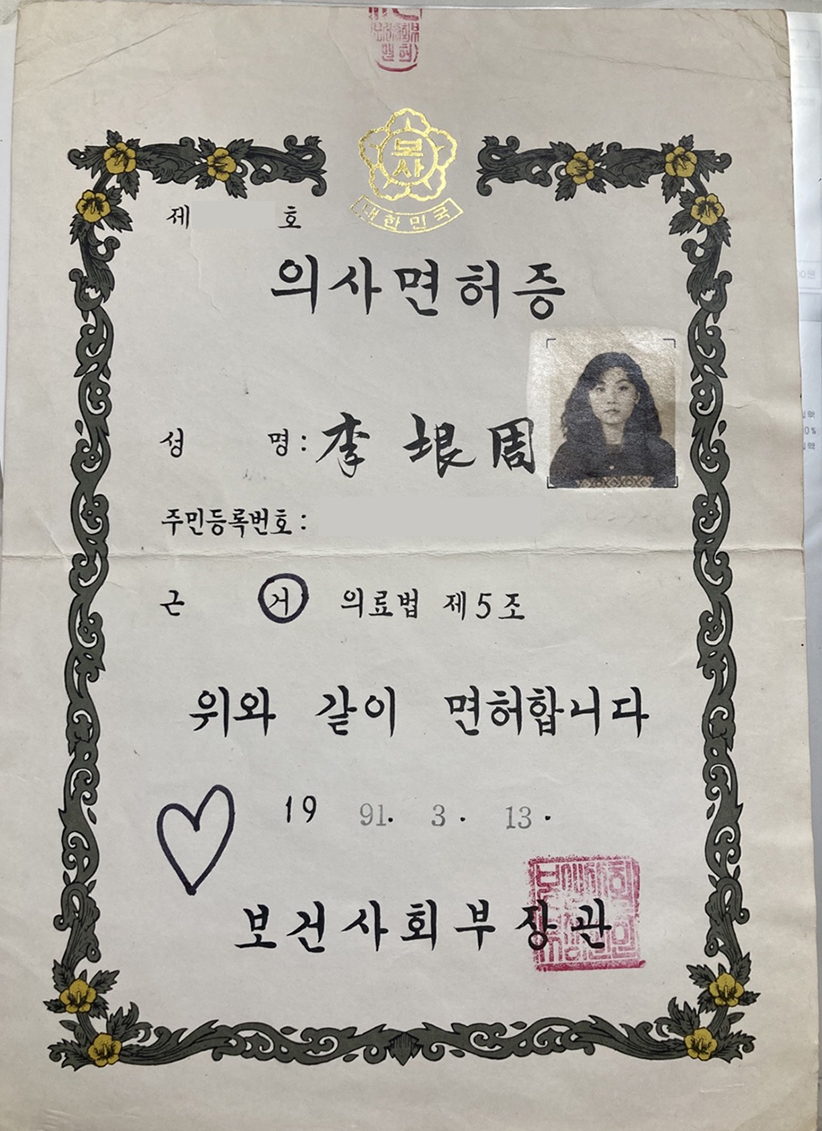 보사
대한민국
제 호
의사면허증
성 명: 李垠周
주민등록번호:
근 거 의료법 제5조
위와 같이 면허합니다
19 91. 3. 13.
보건사회부장관